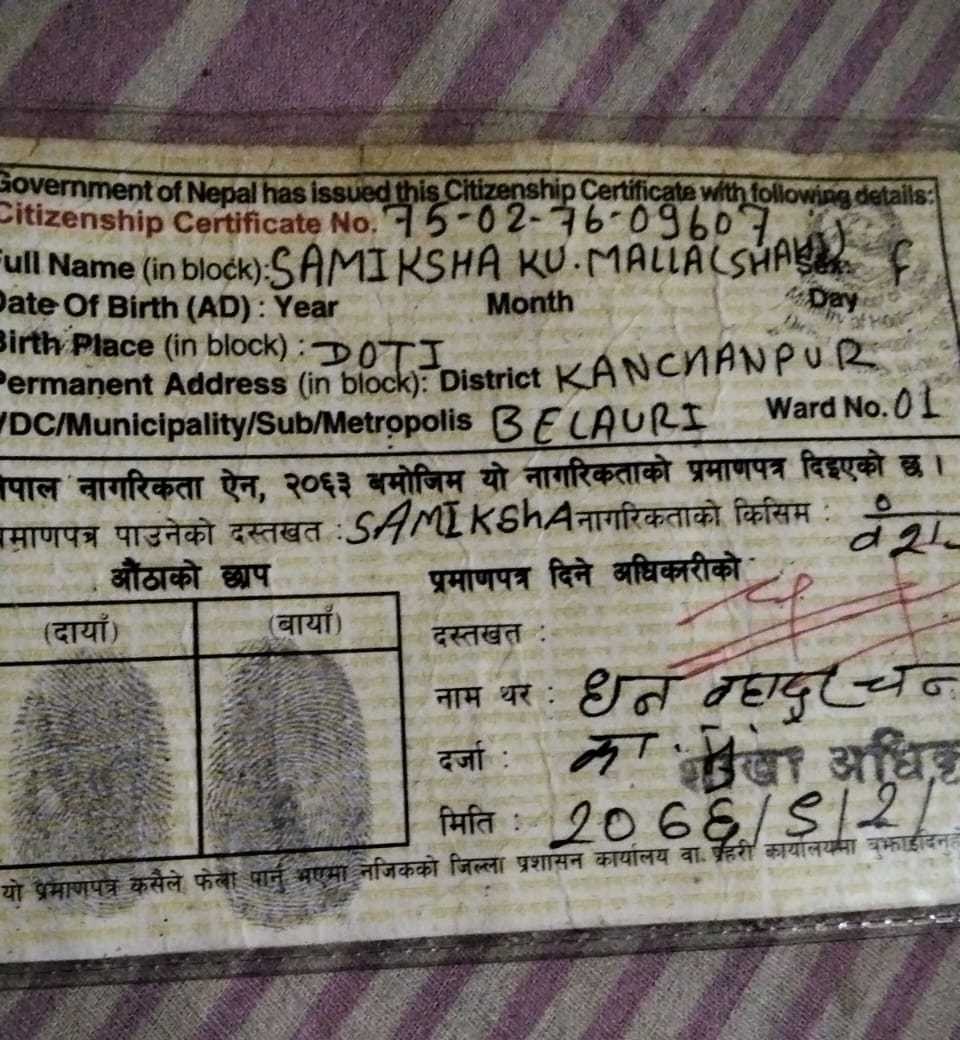 Government of Nepal has issued this Citizenship Certificate with following details:
Citizenship Certificate No. 75-02-76-09607
Full Name (in block): SAMIKSHA KU. MALLA (SHAHI) Sex: F
Date Of Birth (AD) : Year Month Day
Birth Place (in block) : DOTI
Permanent Address (in block): District KANCHANPUR
VDC/Municipality/Sub/Metropolis BELAURI Ward No. 01
नेपाल नागरिकता ऐन, २०६३ बमोजिम यो नागरिकताको प्रमाणपत्र दिइएको छ ।
प्रमाणपत्र पाउनेको दस्तखत : SAMIKShA नागरिकताको किसिम :
औंठाको छाप प्रमाणपत्र दिने अधिकारीको
(दायाँ) (बायाँ)
दस्तखत :
नाम थर : धन बहादुर चन्द
दर्जा : का. शाखा अधिकृ
मिति : 2066/9/2/
यो प्रमाणपत्र कसैले फेला पार्नु भएमा नजिकको जिल्ला प्रशासन कार्यालय वा प्रहरी कार्यालयमा बुझाईदिनु